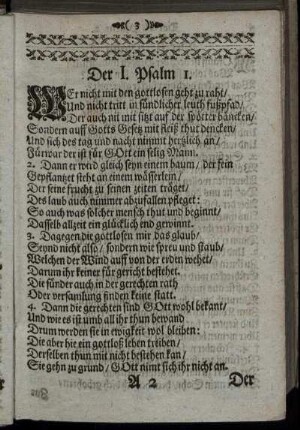 3
Der I. Psalm 1.
WEr nicht mit den gottlosen geht zu raht/
Und nicht tritt in sündlicher leuth fußpfad/
Der auch nit mit sitzt auf der spötter bäncken/
Sondern auff Gotts Gesetz mit fleiß thut dencken/
Und sich des tag und nacht nimmt hertzlich an/
Fürwar der ist für GOtt ein selig Mann.
2. Dann er wird gleich seyn einem baum/ der fein
Gepflantzet steht an einem wässerlein/
Der seine frucht zu seinen zeiten träget/
Des laub auch nimmer abzufallen pfleget:
So auch was solcher mensch thut und beginnt/
Dasselb allzeit ein glücklich end gewinnt.
3. Dagegen die gottlosen mir das glaub/
Seynd nicht also/ sondern wie spreu und staub/
Welchen der Wind auff von der erden wehet/
Darum ihr keiner für gericht bestehet.
Die sünder auch in der gerechten rath
Oder versamlung finden keine statt.
4. Dann die gerechten sind GOtt wohl bekant/
Und wie es umb all ihr thun bewand
Drum werden sie in ewigkeit wol bleiben:
Die aber hie ein gottloß leben treiben/
Derselben thun mit nicht bestehen kan/
Sie gehn zu grund/ GOtt nimt sich ihr nicht an.
A 2 Der